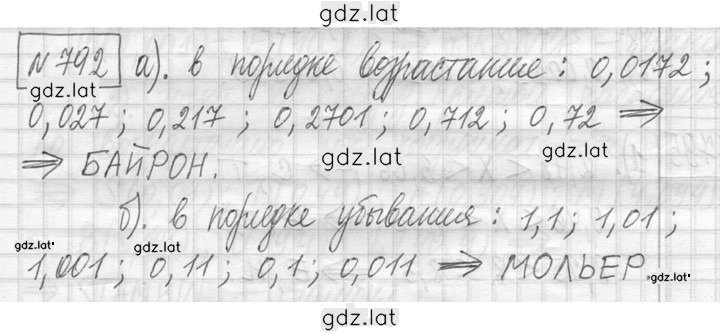 gdz.lat
№ 792 а). в порядке возрастание : 0,0172 ;
gdz.lat
0,027 ; 0,217 ; 0,2701 ; 0,712 ; 0,72 ⇒
gdz.lat gdz.lat
⇒ БАЙРОН.
б). в порядке убывания : 1,1 ; 1,01 ;
gdz.lat gdz.lat
1,001 ; 0,11 ; 0,1 ; 0,011 ⇒ МОЛЬЕР
gdz.lat
gdz.lat